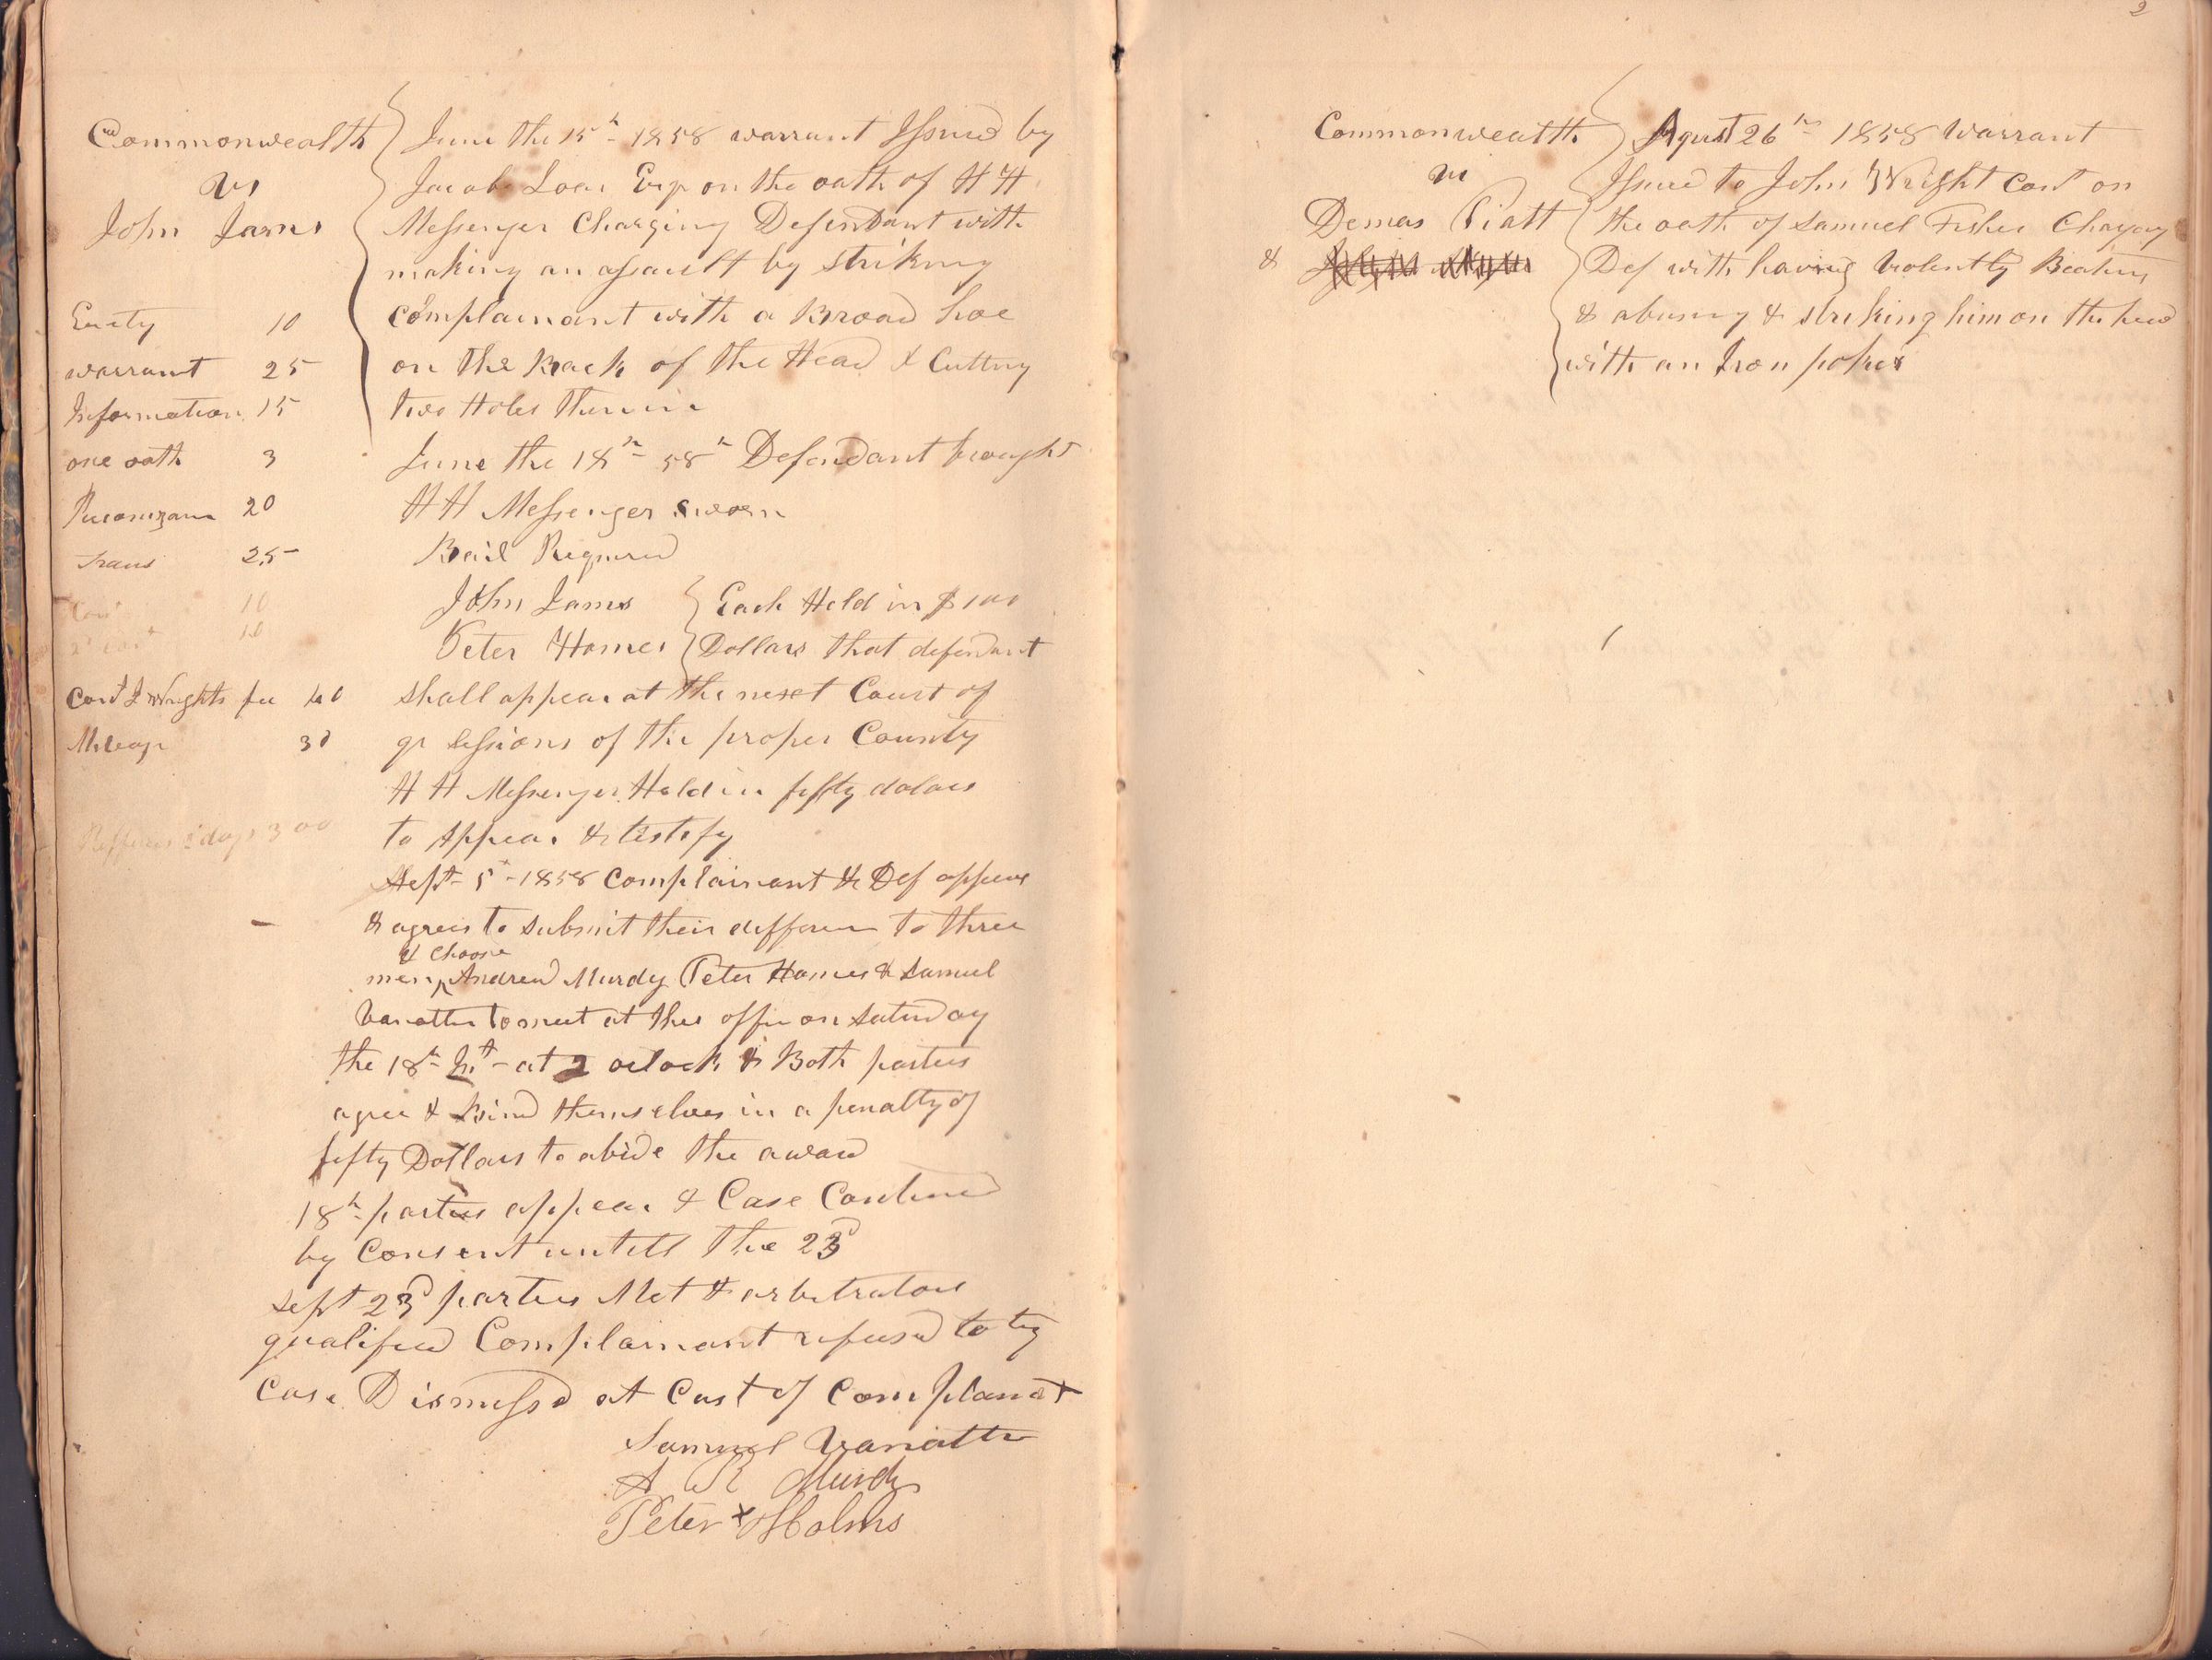 Commonwealth
vs
John Iams
Enrty 10
warrant 25
Information 15
one oath 3
Recognizanc 20
Trans 25
Cons 10
2d Cost 10
Const J Wrights fee 40
Mileage 30
Refferes 2 days 3 00
June the 15th 1858 warrant Issued by
Jacob Loar Esqr on the oath of H H
Messenger Charging Defendant with
making an assault by striking
complainant with a Broad hoe
on the Back of the Head & Cutting
two Holes therein
June the 18th 58th Defendant brought
H H Messenger sworn
Bail Required
John Iams Each Held in $100
Peter Homes Dollars that defendant
shall appear at the next Court of
qr sessions of the proper County
H H Messenger Held in fifty dolars
to Appear & testify
Sept 5th 1858 Complainant & Def appear
& agrees to submit their differenc to three
& Choose
men, Andrew Murdy Peter Homes & Samuel
Vanatta to meet at this offic on Saturday
the 18th Inst at 2 oclock & Both parties
agree & Bind themselves in a penalty of
fifty Dollars to abide the award
18th parties appear & Case Continued
by Consent untill the 23d
Sept 23d parties Met & arbitrators
qualified Complainant refused to try
Case Dismissd at Cost of Complanat
Samuel Vanatta
A R Murdy
Peter x Holms
2
Commonwealth
vs
Demas Piatt
&
Agust 26th 1858 Warrant
Issued to John Wright Const on
the oath of Samuel Fisher Chargng
Def with having Violently Beating
& abusing & striking him on the head
with an Iron poker